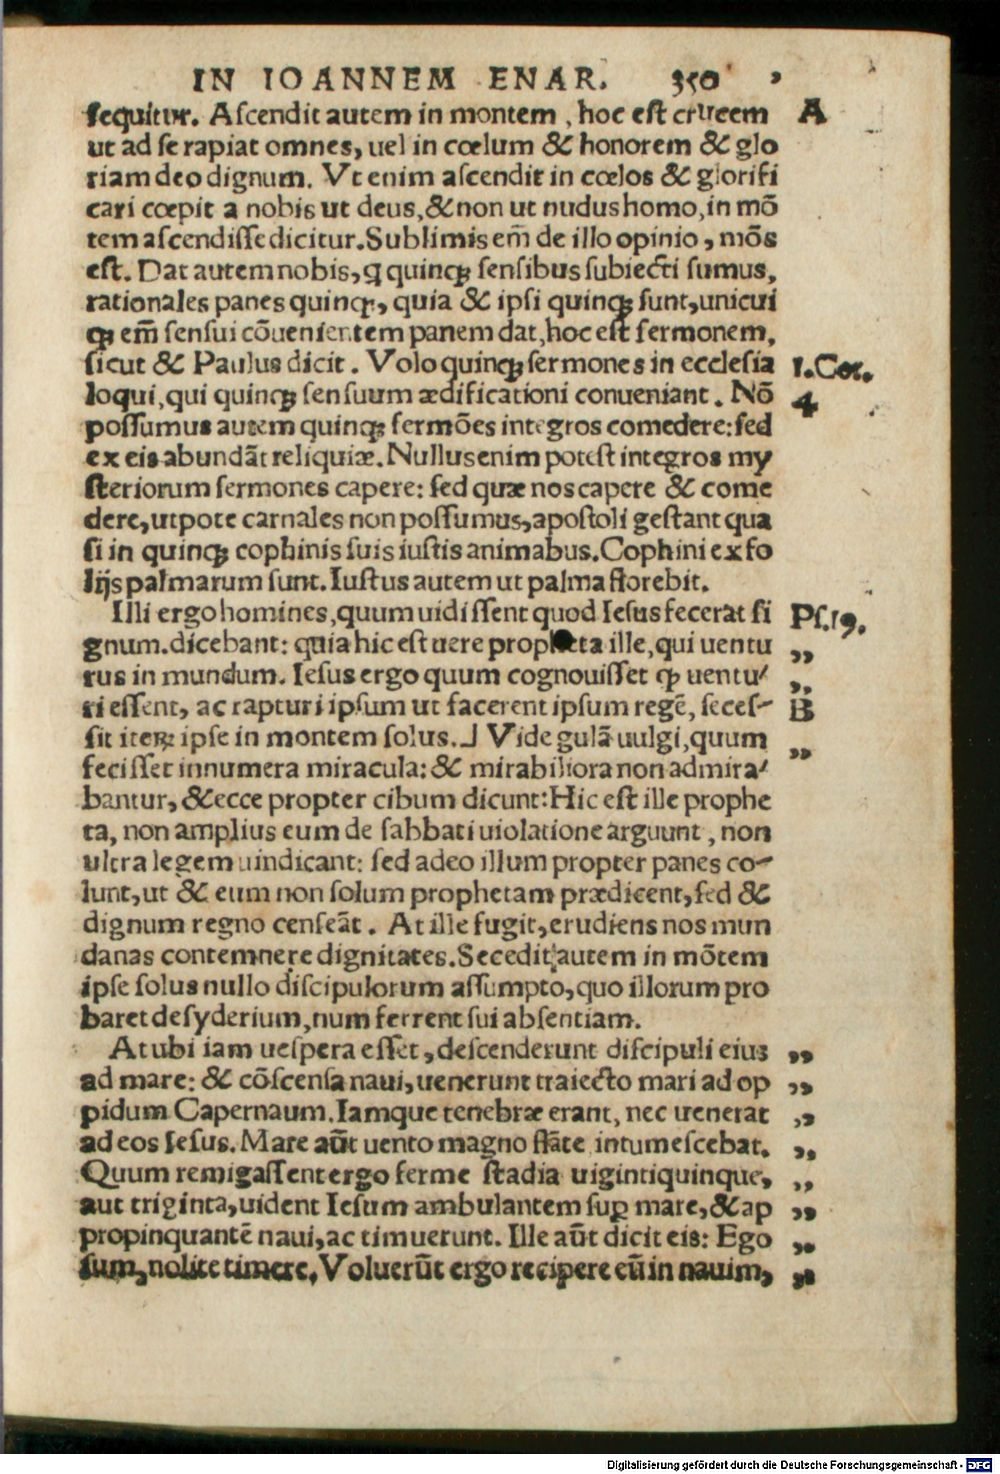 IN IOANNEM ENAR. 350
sequitur. Ascendit autem in montem, hoc est crucem A
ut ad se rapiat omnes, uel in cœlum & honorem & glo
riam deo dignum. Vt enim ascendit in cœlos & glorifi
cari cœpit a nobis ut deus, & non ut nudus homo, in mō
tem ascendisse dicitur. Sublimis em̄ de illo opinio, mōs
est. Dat autem nobis, q quinq; sensibus subiecti sumus,
rationales panes quinq;, quia & ipsi quinq; sunt, unicui
q; em̄ sensui cōuenientem panem dat, hoc est sermonem,
sicut & Paulus dicit. Volo quinq; sermones in ecclesia 1.Cor.
loqui, qui quinq; sensuum ædificationi conueniant. Nō 4
possumus autem quinq; sermōes integros comedere: sed
ex eis abundāt reliquiæ. Nullus enim potest integros my
steriorum sermones capere: sed quæ nos capere & come
dere, utpote carnales non possumus, apostoli gestant qua
si in quinq; cophinis suis iustis animabus. Cophini ex fo
lijs palmarum sunt. Iustus autem ut palma florebit.
Illi ergo homines, quum uidissent quod Iesus fecerat si Ps.19.
gnum. dicebant: quia hic est uere propheta ille, qui uentu „
rus in mundum. Iesus ergo quum cognouisset ꝙ uentu⸗ „
ri essent, ac rapturi ipsum ut facerent ipsum regē, seces⸗ B
sit iterꝝ ipse in montem solus.⅃ Vide gulā uulgi, quum „
fecisset innumera miracula: & mirabiliora non admira⸗
bantur, & ecce propter cibum dicunt: Hic est ille prophe
ta, non amplius eum de sabbati uiolatione arguunt, non
ultra legem uindicant: sed adeo illum propter panes co⸗
lunt, ut & eum non solum prophetam prædicent, sed &
dignum regno censeāt. At ille fugit, erudiens nos mun
danas contemnere dignitates. Secedit autem in mōtem
ipse solus nullo discipulorum assumpto, quo illorum pro
baret desyderium, num ferrent sui absentiam.
At ubi iam uespera esset, descenderunt discipuli eius „
ad mare: & cōscensa naui, uenerunt traiecto mari ad op „
pidum Capernaum. Iamque tenebræ erant, nec uenerat „
ad eos Iesus. Mare aūt uento magno flāte intumescebat. „
Quum remigassent ergo ferme stadia uigintiquinque, „
aut triginta, uident Iesum ambulantem suꝑ mare, & ap „
propinquantē naui, ac timuerunt. Ille aūt dicit eis: Ego „
sum, nolite timere. Voluerūt ergo recipere eū in nauim, „
Digitalisierung gefördert durch die Deutsche Forschungsgemeinschaft - DFG